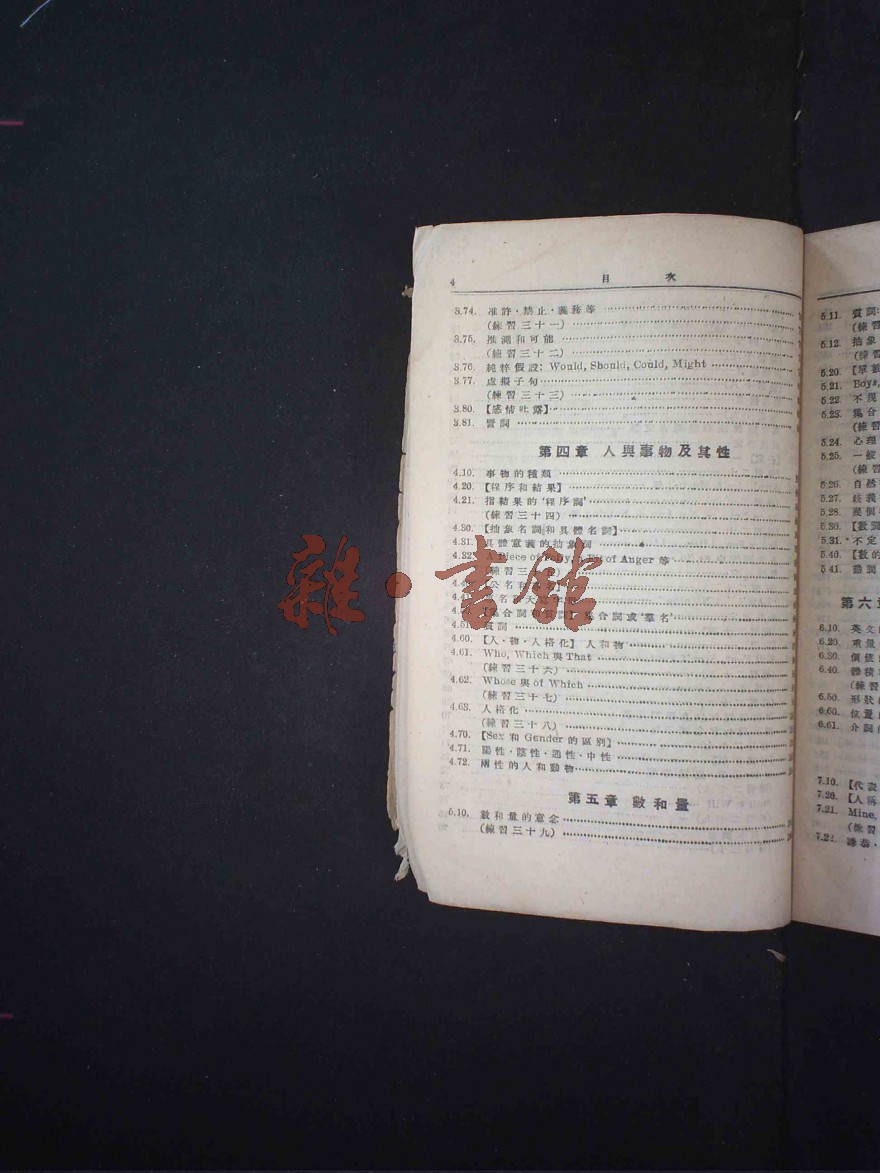 4 目 次
3.74. 准許·禁止·義務等
(練習三十一)
3.75. 推測和可能
(練習三十二)
3.76. 純粹假設: Would, Should, Could, Might
3.77. 虛擬子句
(練習三十三)
3.80. 【感情吐露】
3.81. 詈詞
第四章 人與事物及其性
4.10. 事物的種類
4.20. 【程序和結果】
4.21. 指結果的‘程序詞’
(練習三十四)
4.30. 【抽象名詞和具體名詞】
4.31. 具體意義的抽象詞
4.32. A Piece of Folly, A Fit of Anger 等
集合詞或‘羣名’
質詞
4.60. 【人·物·人格化】 人和物
4.61. Who, Which 與 That
(練習三十六)
4.62. Whose 與 of Which
(練習三十七)
4.63. 人格化
(練習三十八)
4.70. 【Sex 和 Gender 的區別】
4.71. 陽性·陰性·通性·中性
4.72. 兩性的人和動物
第五章 數和量
5.10. 數和量的意念
(練習三十九)
5.11. 質詞
(練習
5.12. 抽象
(練習
5.20. 【單數
5.21. Boys,
5.22. 不規
5.23. 集合
(練習
5.24. 心理
5.25. 一般
(練習
5.26. 自然
5.27. 歧義
5.28. 幾個
5.30. 【數
5.31. 不定
5.40. 【數的
5.41.
第六章
6.10. 英文
6.20. 重量
6.30. 價值的
6.40. 體積
(練習
6.50. 形狀的
6.60. 位置的
6.61. 介詞的
7.10. 【代表
7.20. 【人稱
7.21. Mine,
(練習
7.22. 謙恭·
雜·書館